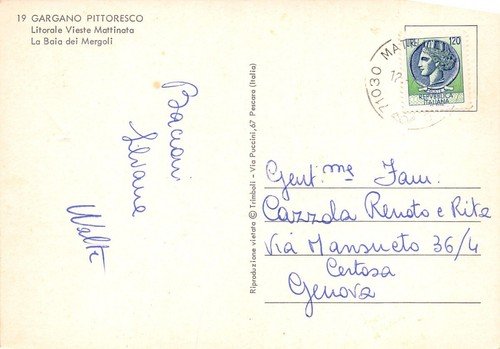 19 GARGANO PITTORESCO
Litorale Vieste Mattinata
La Baia dei Mergoli
Bacioni
Silvana
Walter
Riproduzione vietata © Trimboli - Via Puccini, 67 Pescara (Italia)
71030 MAT
120
REPUBBLICA
ITALIANA
Gent.me Fam.
Cazzola Renato e Rita
Via Mansueto 36/4
Certosa
Genova